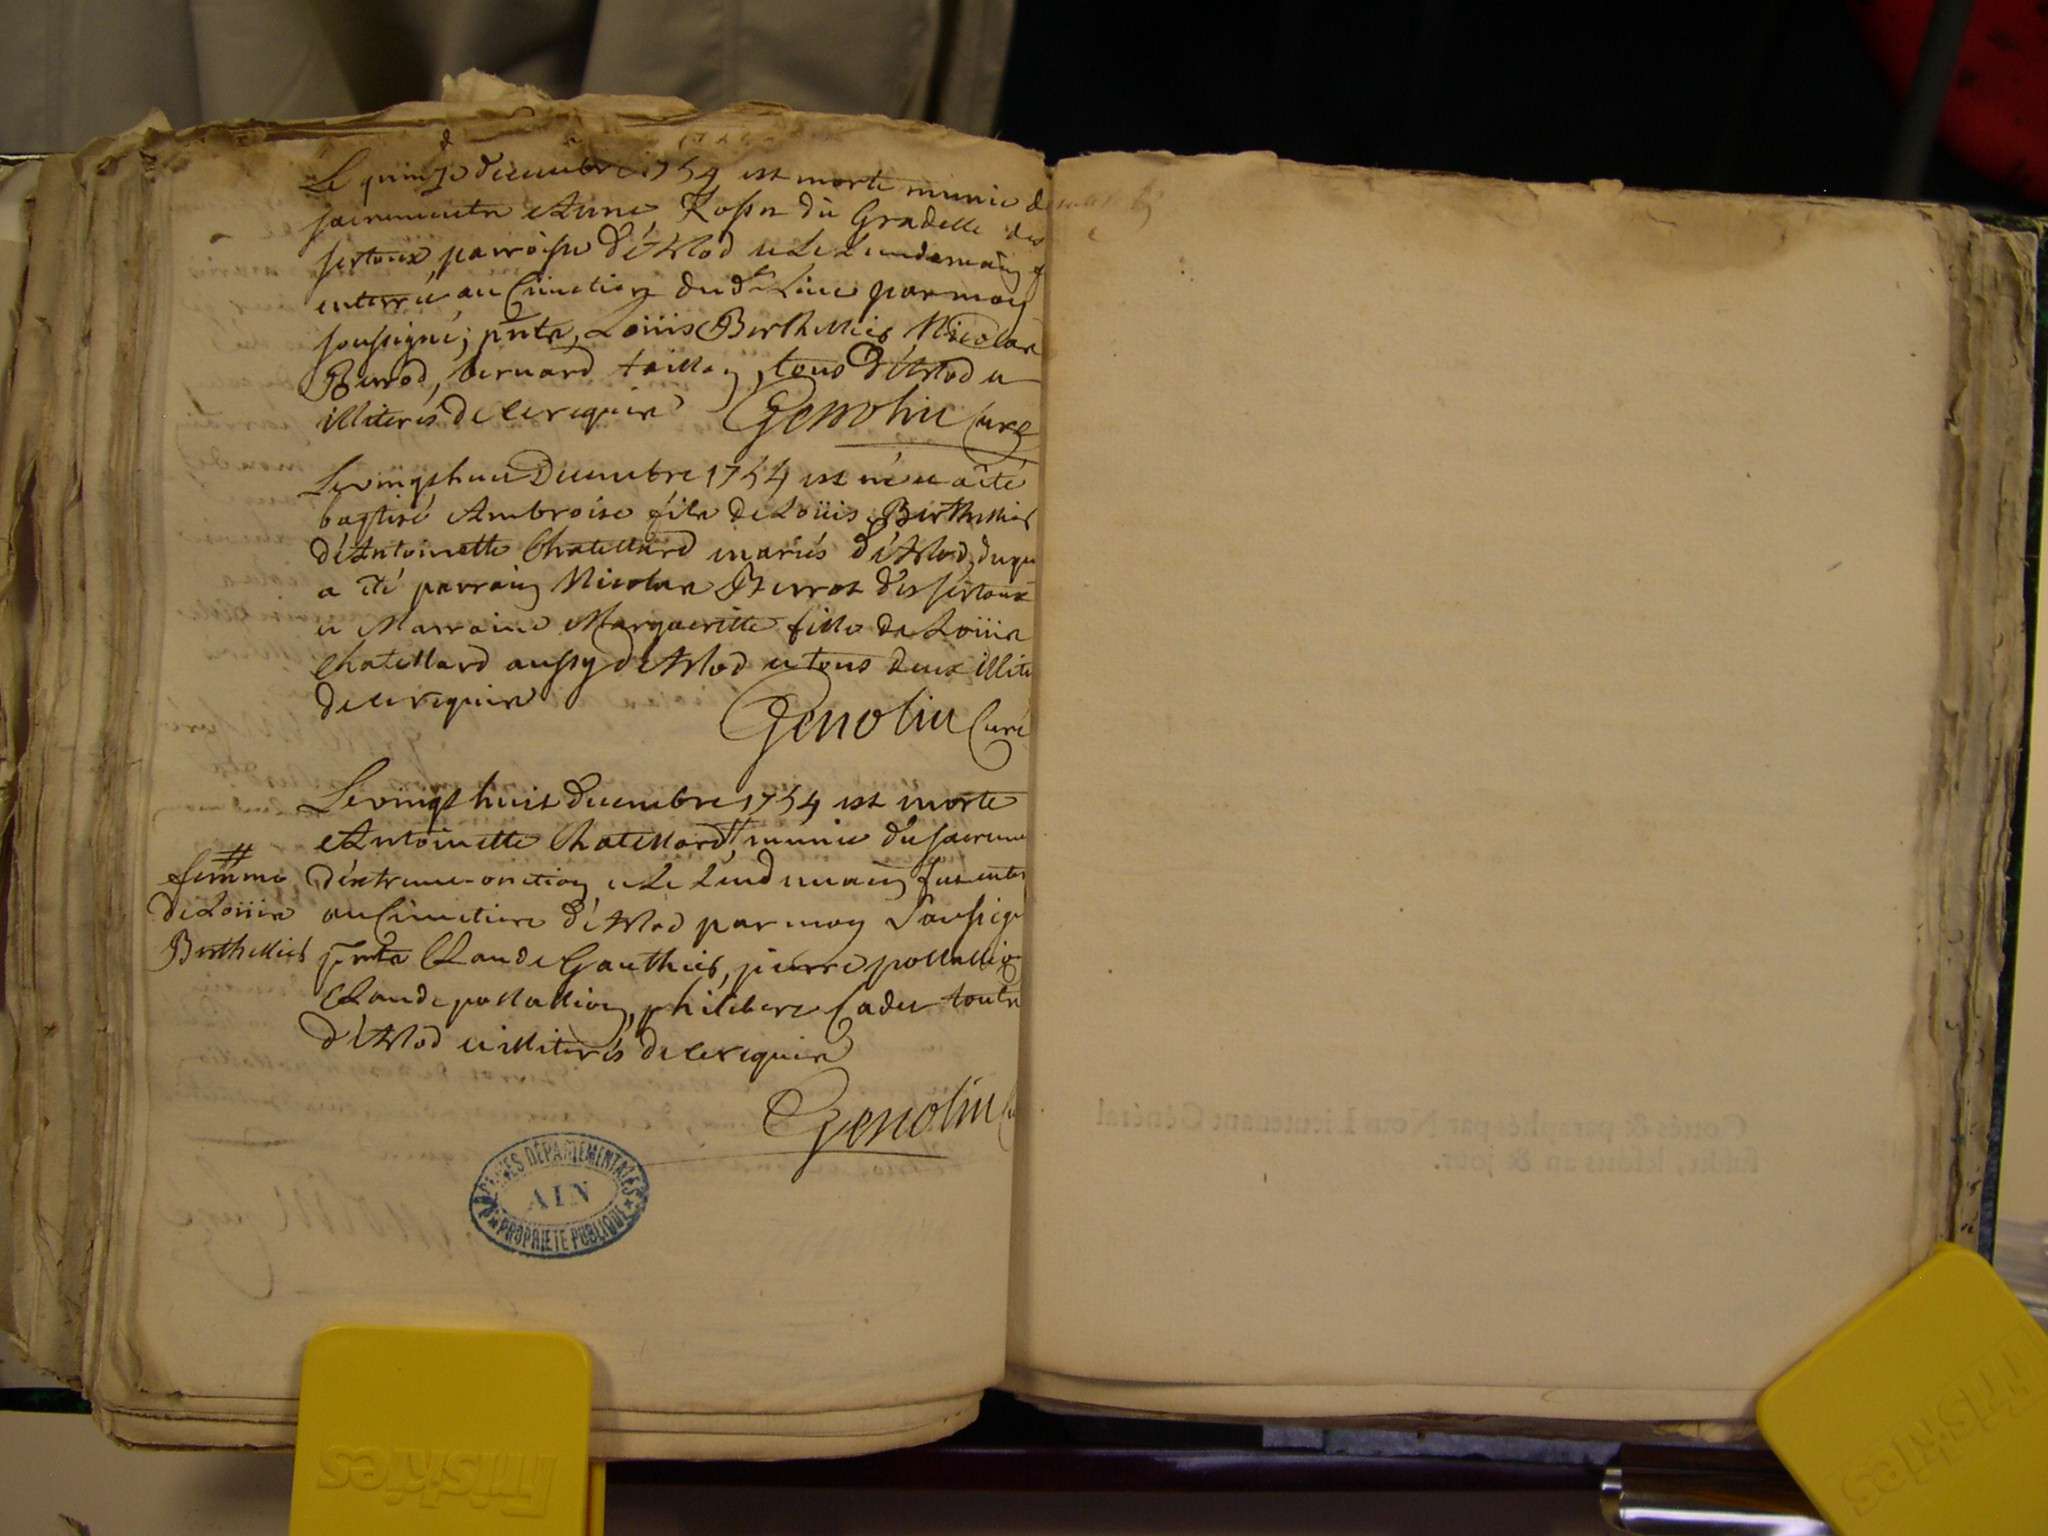 Le quinze decembre 1754 est morte munie de
sacrements Anne Rosset du Gradelle des
sertoux parroisse d'Arlod et le lendemain
enterrée au Cimetiere dud. Lieu par moy
soussigné; pnts, Loüis Berthellier, Nicolas
Berrod, bernard taillon, tous d'Arlod et
illiterés de ce requis Genolin Curé
Le vingt huit Decembre 1754 est né et a êté
baptisé Ambroise fils de Loüis Berthellier
d'Antoinette Chatellard mariés d'Arlod, duquel
a êté parrain Nicolas Berrod des sertoux
et Marraine Margueritte fille de Loüis
Chatellard aussy d'Arlod et tous deux illite
de ce requis Genolin Curé
Le vingt huit decembre 1754 est morte
Antoinette Chatellard # munie du sacreme
d'extreme-onction et le lendemain fut enter
# femme de Loüis Berthellier
au Cimetiere d'Arlod par moy Soussigné
pnts Claude Gauthier, pierre pollallion
Claude pollallion, philibert Cadet touts
d'Arlod et illiterés de ce requis
Genolin
ARCHIVES DÉPARTEMENTALES
AIN
PROPRIÉTÉ PUBLIQUE
Cottés & paraphés par Nous Lieutenant Général
susdit, lesdits an & jour.
Friskies
Friskies